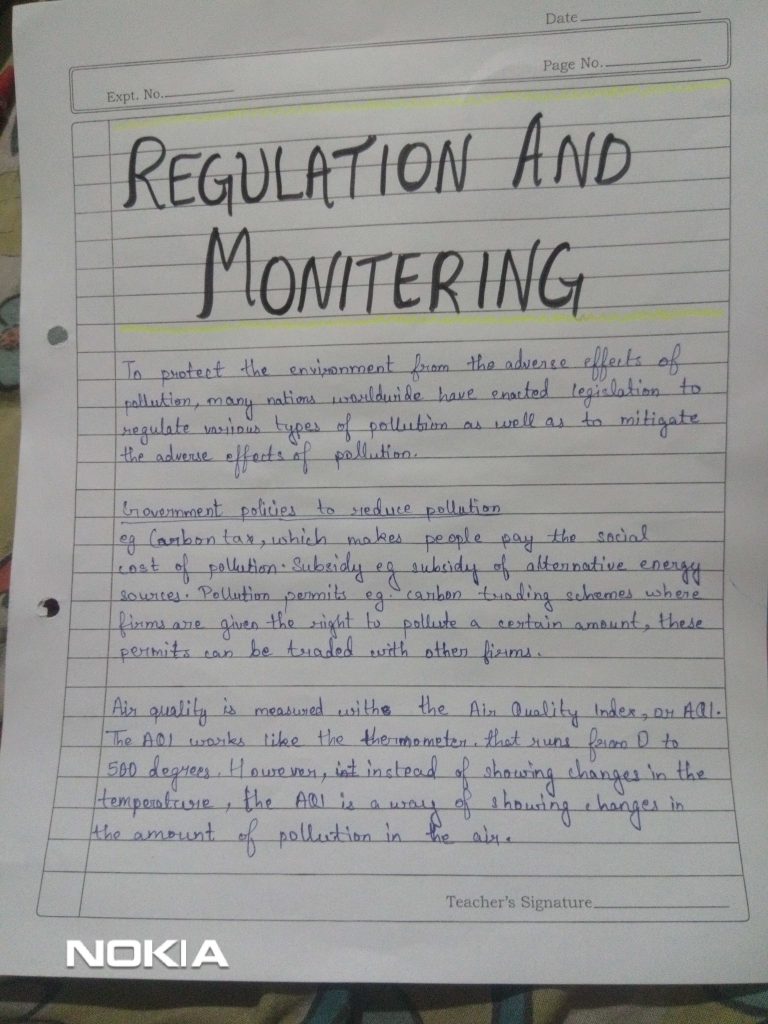 Date
Page No.
Expt. No.
REGULATION AND
MONITERING
To protect the environment from the adverse effects of
pollution, many nations worldwide have enacted legislation to
regulate variious types of pollution as well as to mitigate
the adverse effects of pollution.
Government policies to reduce pollution
eg Carbon tax, which makes people pay the social
cost of pollution. Subsidy eg subsidy of alternative energy
sources. Pollution permits eg. carbon trading schemes where
firms are given the right to pollute a certain amount, these
permits can be traded with other firms.
Air quality is measured with the Air Quality Index, or AQI.
The AQI works like the thermometer. that runs from 0 to
500 degrees. However, instead of showing changes in the
temperature, the AQI is a way of showing changes in
the amount of pollution in the air.
Teacher's Signature
NOKIA